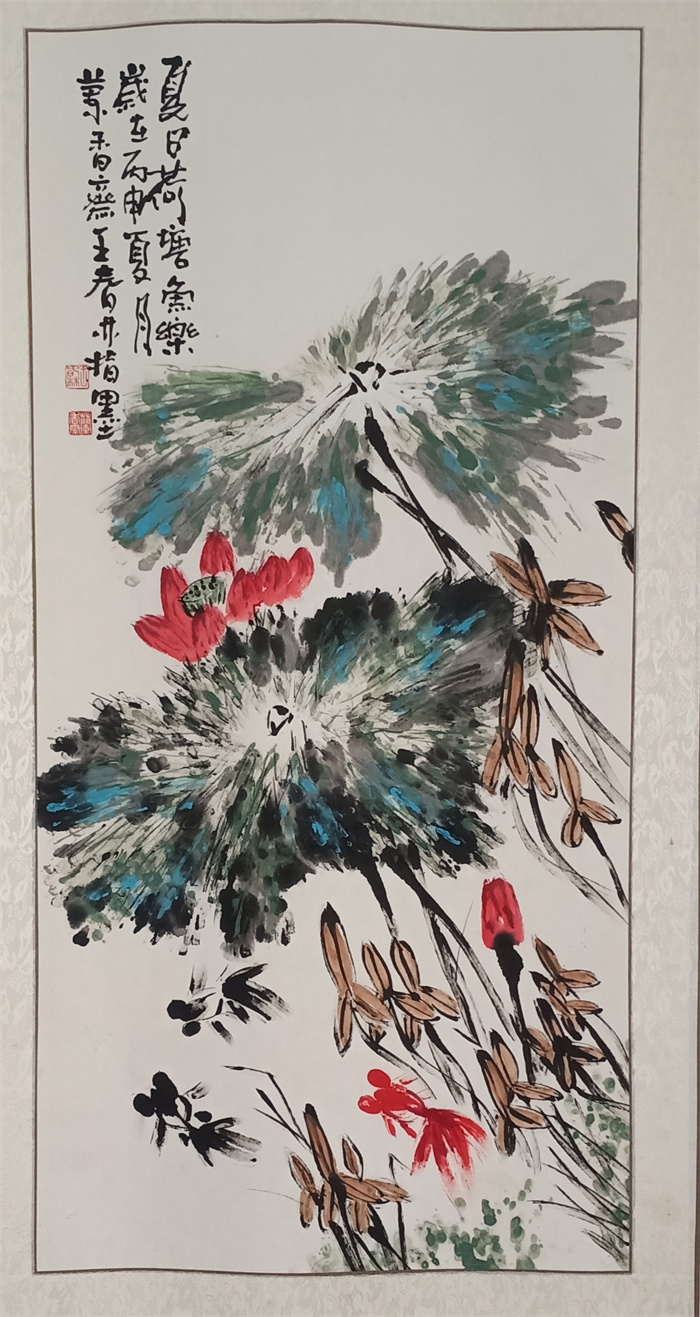 夏日荷塘魚樂
歲在丙申夏月
香齋王春亦指墨